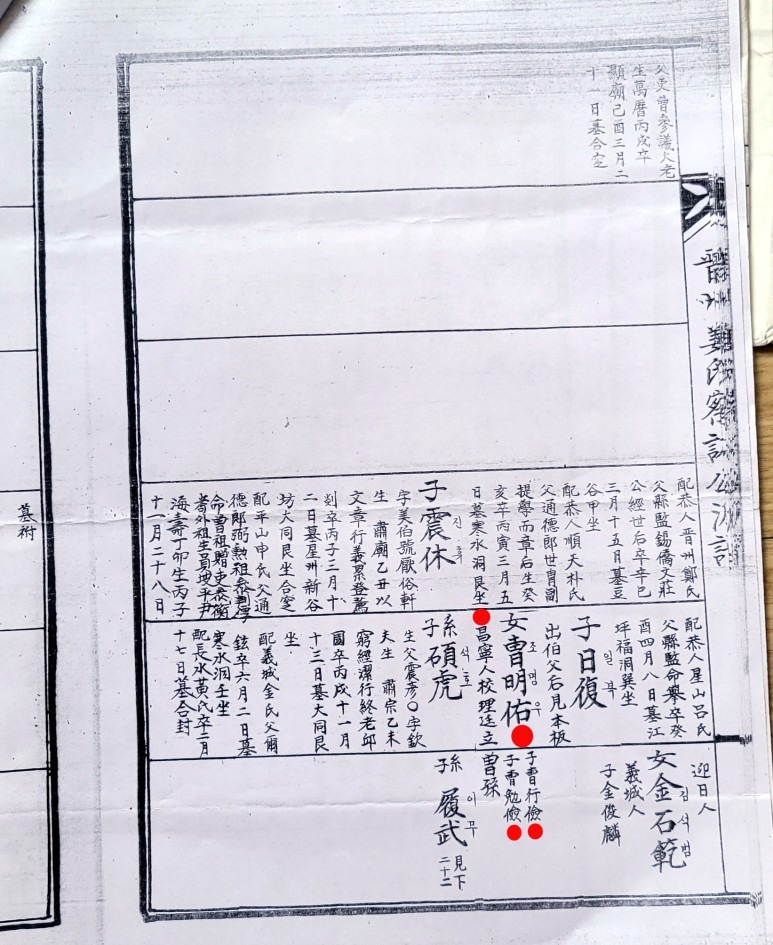 父吏曹參議大老
生萬曆丙戌卒
顯廟己酉三月二
十一日墓合窆
晉州姜氏察訪公派譜
配恭人晉州鄭氏
父縣監錫僑文莊
公經世后卒辛巳
三月十五日墓豆
谷甲坐
配恭人順天朴氏
父通德郎世胄副
提學而章后生癸
亥卒丙寅三月五
日墓寒水洞艮坐
子震休
진휴
字美伯號厭俗軒
生 肅廟乙丑以
文章行義累登薦
剡卒丙子三月十
二日墓星州新谷
坊大同艮坐合窆
配平山申氏父通
德郎弼勲
命曾祖贈吏參衡
外祖生員坡平尹
海壽丁卯生丙子
十一月二十八日
配恭人星山呂氏
父縣監命擧卒癸
酉四月八日墓江
坪福洞巽坐
子日復
일복
出伯父后見本板
女曺明佑
조명우
昌寧人校理廷立
系子碩虎
석호
生父震彥〇字欽
夫生 肅宗乙未
窮經潔行終老邱
園卒丙戌十一月
十三日墓大同艮
坐
配義城金氏父爾
鉉卒六月二日墓
寒水洞壬坐
配長水黃氏卒二月
十七日墓合封
迎日人
女金石範
김석범
義城人
子金俊麟
子曺行儉
子曺勉儉
曾孫
孫 履武
이무
見下
二十二
墓祔